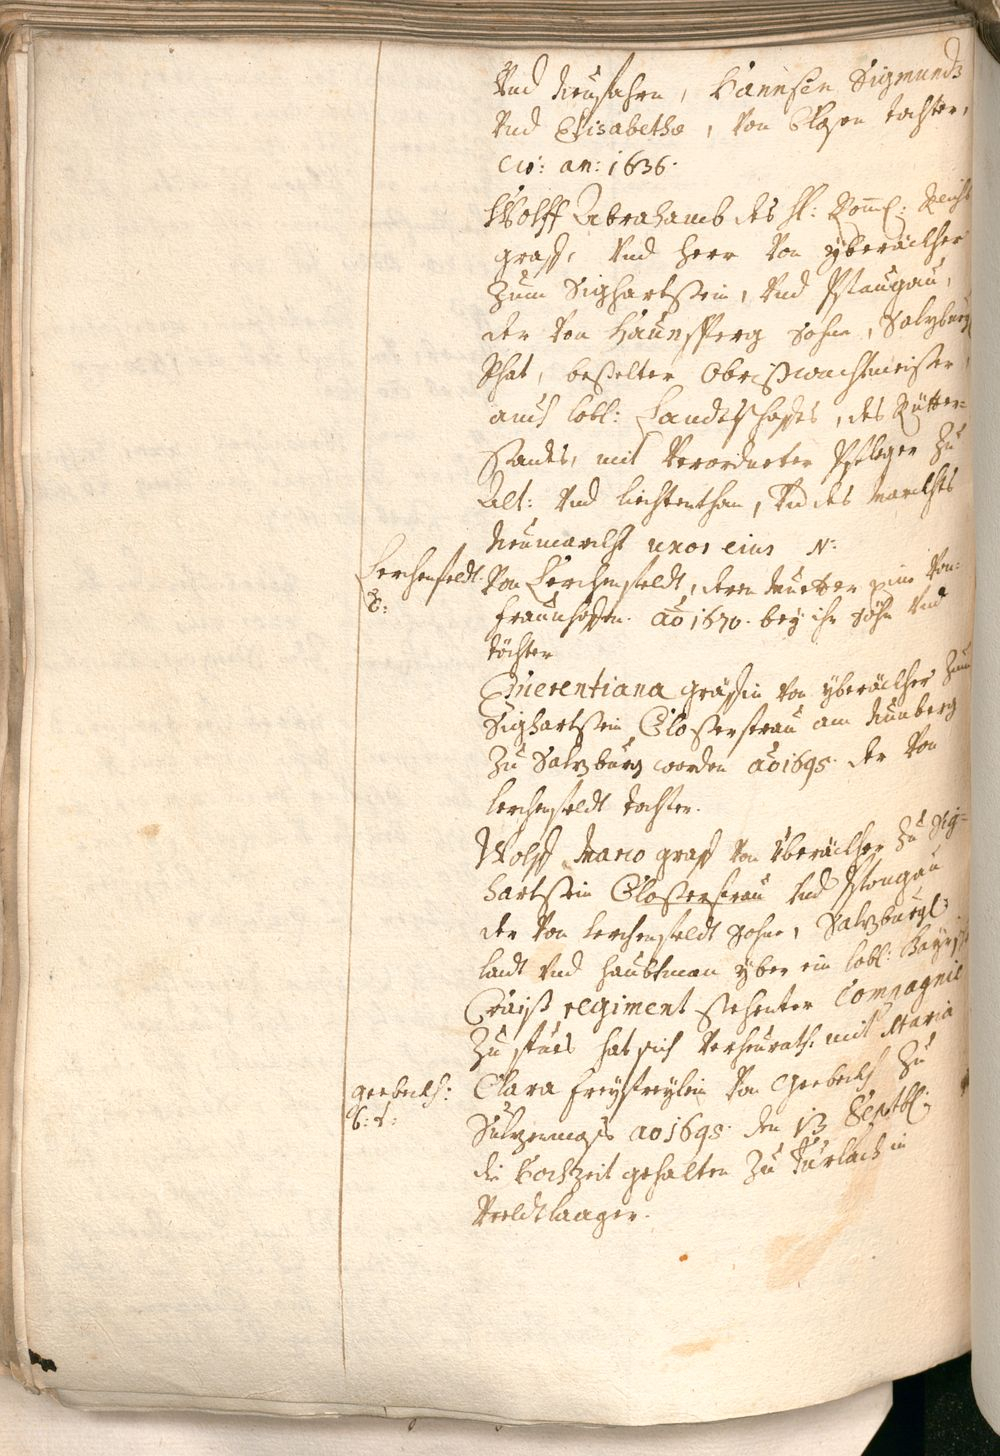 Vnd Neufahrn, Hannsen Sigmundts
Vnd Elisabetha, Von Closen tochter,
Cio: an: 1636.
Wolff Abrahamb des H: Röm: Reichs
graff, Vnd Herr Von Yberäckher
Zum Sighartstein, Vnd Pflaugau,
der Von Haunsperg Sohn, Salzburg:
Rhat, bestelter Obristwachtmeister,
auch lobl: Landtschafft, des Ritter-
Standts, mit Verordneter Pfleger Zu
Alt: Vnd Liechtenthan, Vnd des Marckhts
Neumarckht uxor eius N:
Lerchenfeldt
Von Lerchenfeldt, deren Muetter eine Von
Fraunhoffen. ao 1670. bey ihr Söhn Vnd
töchter
Emerentiana gräffin Von Yberäckher Zum
Sighartstein Closterfrau am Nunberg
Zu Salzburg worden ao 1695. der Von
Lerchenfeldt tochter.
Wolff Mario graff Von Überäckher Zu Sig-
hartstein Closterfrau Vnd Pflongau
der Von Lerchenfeldt Sohn, Salzburgl:
Landt Vnd Haubtman yber ein lobl: Bayrs:
Craiß regiment stehenter Compagnie
Zu fues hat sich Verheurath: mit Maria
geebeckh:
Clara Freyfreylein Von Geebeckh Zu
Sulzemoß ao 1695. den 13 Septbl:
die Hochzeit gehalten Zu Turlach in
Veeldtlaager.